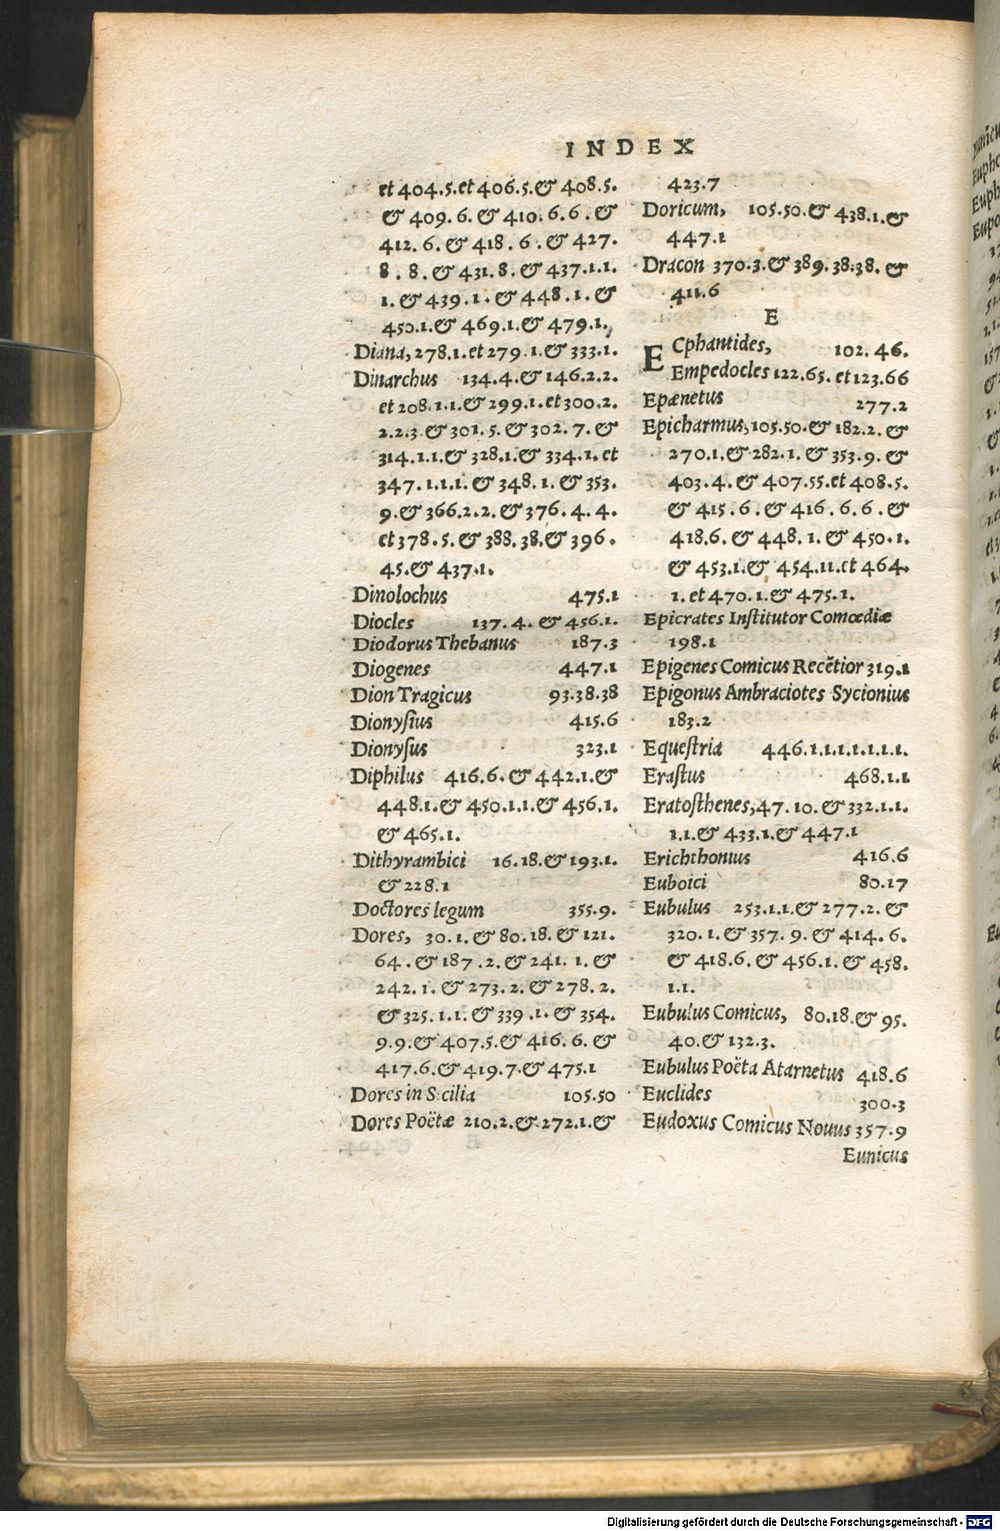 INDEX
et 404.5.et 406.5.& 408.5.
& 409.6.& 410.6.6.&
412.6.& 418.6.& 427.
8.8.& 431.8.& 437.1.1.
1.& 439.1.& 448.1.&
450.1.& 469.1.& 479.1.
Diana, 278.1.et 279.1.& 333.1.
Dinarchus 134.4.& 146.2.2.
et 208.1.1.& 299.1.et 300.2.
2.2.3.& 301.5.& 302.7.&
314.1.1.& 328.1.& 334.1.et
347.1.1.1.& 348.1.& 353.
9.& 366.2.2.& 376.4.4.
et 378.5.& 388.38.& 396.
45.& 437.1.
Dinolochus 475.1
Diocles 137.4.& 456.1.
Diodorus Thebanus 187.3
Diogenes 447.1
Dion Tragicus 93.38.38
Dionysius 415.6
Dionysus 323.1
Diphilus 416.6.& 442.1.&
448.1.& 450.1.1.& 456.1.
& 465.1.
Dithyrambici 16.18.& 193.1.
& 228.1
Doctores legum 355.9.
Dores, 30.1.& 80.18.& 121.
64.& 187.2.& 241.1.&
242.1.& 273.2.& 278.2.
& 325.1.1.& 339.1.& 354.
9.9.& 407.5.& 416.6.&
417.6.& 419.7.& 475.1
Dores in Sicilia 105.50
Dores Poëtæ 210.2.& 272.1.&
423.7
Doricum, 105.50.& 438.1.&
447.1
Dracon 370.3.& 389.38.38.&
411.6
E
ECphantides, 102.46.
Empedocles 122.65.et 123.66
Epænetus 277.2
Epicharmus, 105.50.& 182.2.&
270.1.& 282.1.& 353.9.&
403.4.& 407.55.et 408.5.
& 415.6.& 416.6.6.&
418.6.& 448.1.& 450.1.
& 453.1.& 454.11.et 464.
1.et 470.1.& 475.1.
Epicrates Institutor Comœdiæ
198.1
Epigenes Comicus Recētior 319.1
Epigonus Ambraciotes Sycionius
183.2
Equestria 446.1.1.1.1.1.1.1.
Erastus 468.1.1
Eratosthenes, 47.10.& 332.1.1.
1.1.& 433.1.& 447.1
Erichthonius 416.6
Euboici 80.17
Eubulus 253.1.1.& 277.2.&
320.1.& 357.9.& 414.6.
& 418.6.& 456.1.& 458.
1.1.
Eubulus Comicus, 80.18.& 95.
40.& 132.3.
Eubulus Poëta Atarnetus 418.6
Euclides 300.3
Eudoxus Comicus Nouus 357.9
Eunicus
Digitalisierung gefördert durch die Deutsche Forschungsgemeinschaft - DFG